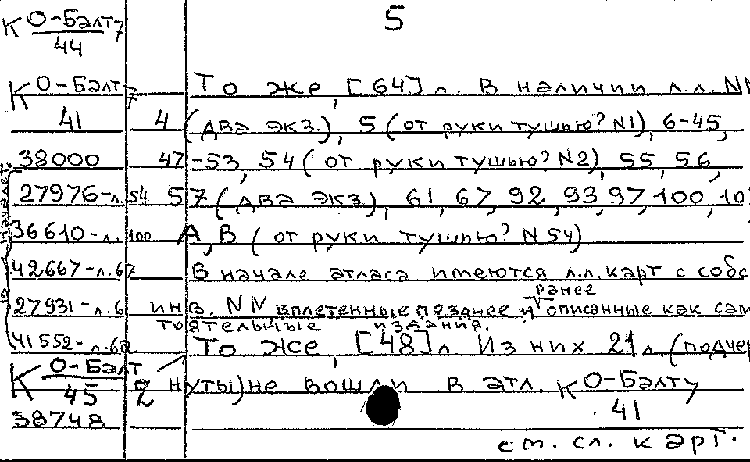 К О-Балт7 5
44
К О-Балт7 То же, [64] л. В наличии л.л. NN
41 4 (два экз.), 5 (от руки тушью? N1), 6-45,
38000 47-53, 54 (от руки тушью? N2), 55, 56,
27976-л.54 57 (два экз.), 61, 67, 92, 93, 97, 100, 10
36610-л.100 А, В (от руки тушью? N54)
42667-л.67 В начале атласа имеются л.л. карт с собс
ранее
27931-л.6 инв. NN вплетенные позднее и описанные как сам
тоятельные издания.
41552-л.62 То же, [48] л. Из них 21 л. (подчер
К О-Балт
45 2 нуты) не вошли в атл. К О-Балт7
38748 41
см. сл. карт.